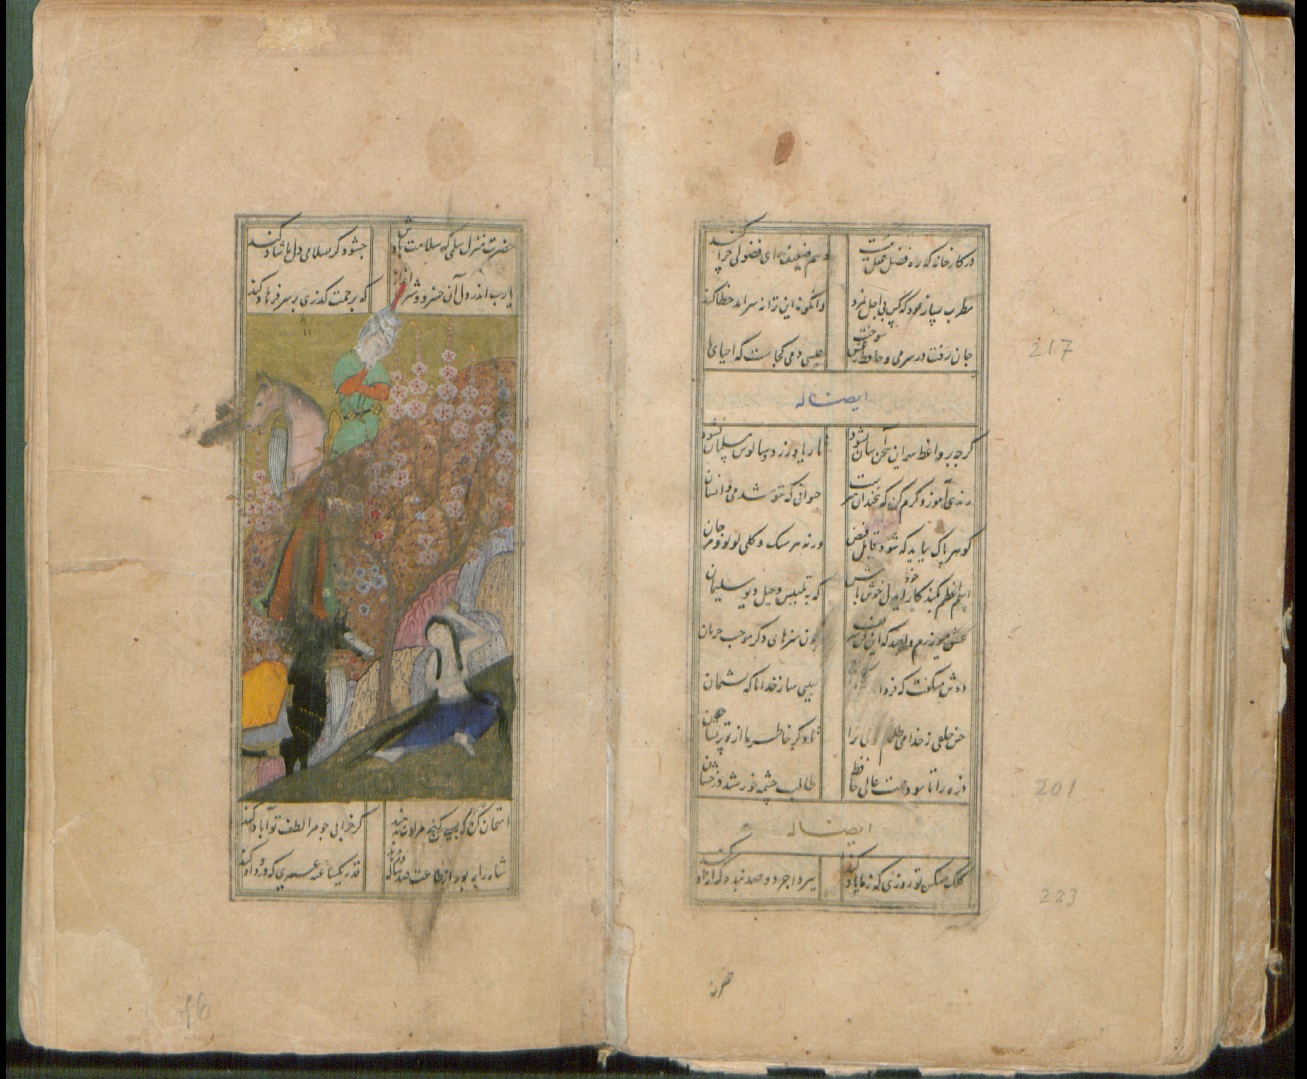 در کارخانه که ره فضل و عقل نیست وهم ضعیف رای فضولی چرا کند
مطرب بساز عود که کس بی اجل نمرد وانکو نه این ترانه سراید خطا کند
جان رفت در سر می و حافظ بعشق سوخت عیسی دمی کجاست که احیای ما
ایضاً له
گرچه بر واعظ شهر این سخن آسان نشود تا ریا ورزد و سالوس مسلمان نشود
رندی آموز و کرم کن که نه چندان هنرست حیوانی که ننوشد می و انسان
گوهر پاک بباید که شود قابل فیض ورنه هر سنگ و گلی لولو و مرجان
اسم اعظم بکند کار خود ای دل خوش باش که به تلبیس و حیل دیو سلیمان
عشق میورزم و امید که این فن شریف چون هنرهای دگر موجب حرمان
دوش میگفت که فردا سببی ساز خدایا که پشیمان
حسن خلقی ز خدا می طلبم را تا دگر خاطر ما از تو پریشان
ذره را تا نبود همت عالی حافظ طالب چشمه خورشید درخشان
ایضاً له
کلک مشکین تو روزی که ز ما یاد کند ببرد اجر دو صد بنده که آزاد کند
حضرت
217
201
223
حضرت منزل سلمی که سلامت بادش چه شود گر سلامی دل ما شاد کند
یارب اندر دل آن خسرو شیرین انداز که برحمت گذری بر سر فرهاد کند
امتحان کن که بسی گنج مرادت بدهند گر خرابی چو مرا لطف تو آباد کند
شاه را به بود از طاعت صد ساله و زهد قدر یکساعته عمری که درو داد کند
46